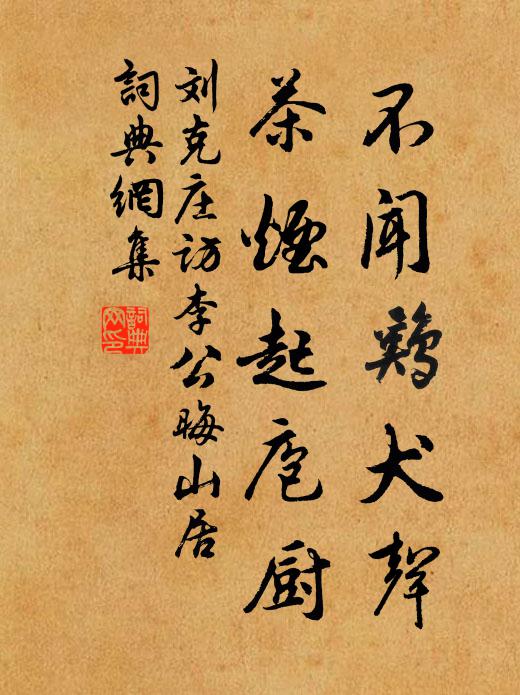 不闻鷄犬聲
茶煙起庖厨
刘克庄访李公晦山居
詞典網集
詞典網印